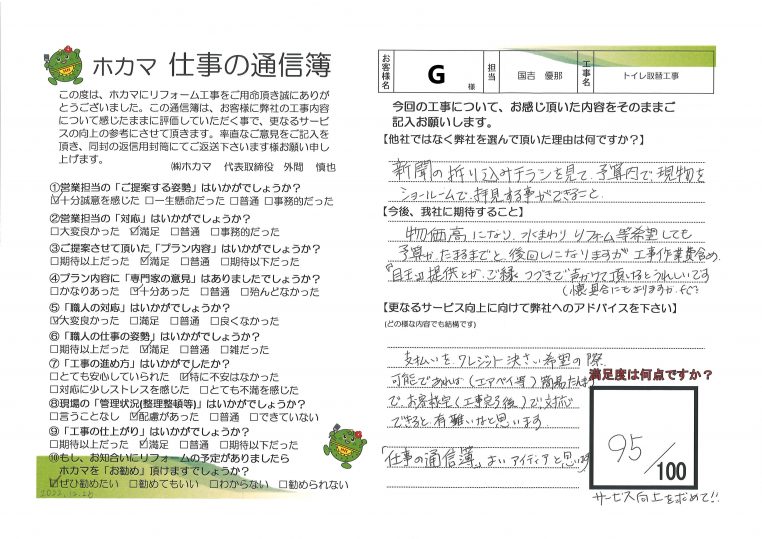 ホカマ 仕事の通信簿
この度は、ホカマにリフォーム工事をご用命頂き誠にありが
とうございました。この通信簿は、お客様に弊社の工事内容
について感じたままに評価していただく事で、更なるサービ
スの向上の参考にさせて頂きます。率直なご意見をご記入を
頂き、同封の返信用封筒にてご返送下さいます様お願い申し
上げます。
㈱ホカマ 代表取締役 外間 慎也
①営業担当の「ご提案する姿勢」はいかがでしょうか？
☑十分誠意を感じた □一生懸命だった □普通 □事務的だった
②営業担当の「対応」はいかがでしょうか？
□大変良かった ☑満足 □普通 □事務的だった
③ご提案させて頂いた「プラン内容」はいかがでしょうか？
□期待以上だった ☑満足 □普通 □期待以下だった
④プラン内容に「専門家の意見」はありましたでしょうか？
□かなりあった ☑十分あった □普通 □殆んどなかった
⑤「職人の対応」はいかがでしょうか？
☑大変良かった □満足 □普通 □良くなかった
⑥「職人の仕事の姿勢」はいかがでしょうか？
□期待以上だった ☑満足 □普通 □雑だった
⑦「工事の進め方」はいかがでしたか？
□とても安心していられた ☑特に不安はなかった
□対応に少しストレスを感じた □とても不満を感じた
⑧現場の「管理状況(整理整頓等)」はいかがでしょうか？
□言うことなし ☑配慮があった □普通 □できていない
⑨「工事の仕上がり」はいかがでしょうか？
□期待以上だった ☑満足 □普通 □期待以下だった
⑩もし、お知合いにリフォームの予定がありましたら
ホカマを「お勧め」頂けますでしょうか？
☑ぜひ勧めたい □勧めてもいい □わからない □勧められない
2022.12.28
お客様名 G 様 担当 国吉 優那 工事名 トイレ取替工事
今回の工事について、お感じ頂いた内容をそのままご
記入お願いします。
【他社ではなく弊社を選んで頂いた理由は何ですか？】
新聞の折り込みチラシを見て、予算内で現物を
ショールームで拝見する事ができること
【今後、我社に期待すること】
物価高になり、水まわりリフォーム等希望しても
予算がたまるまでと、後回しになりますが、工事作業費含め、
『目玉』提供とか、ご縁つづきで声かけて頂けるとうれしいです
(懐具合にもよりますが
【更なるサービス向上に向けて弊社へのアドバイスを下さい】
(どの様な内容でも結構です)
支払いをクレジット決さい希望の際
可能であれば(エアペイ等)
で、お客様宅(工事完了後)で対応
できると有難いなと思います
「仕事の通信簿」よいアイディアと思います
満足度は何点ですか？
95/100
サービス向上を求めて!!